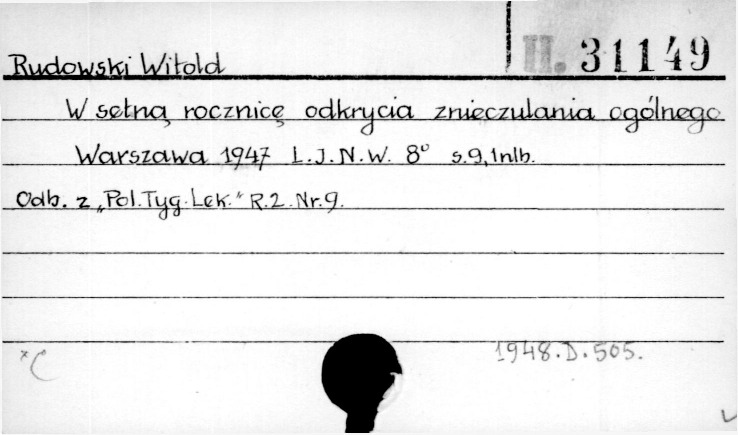 Rudowski Witold
II. 31149
W setną rocznicę odkrycia znieczulania ogólnego
Warszawa 1947 L.J.N.W. 8° s.9,1nlb.
Odb. z „Pol.Tyg.Lek.” R.2.Nr.9.
1948.D.505.